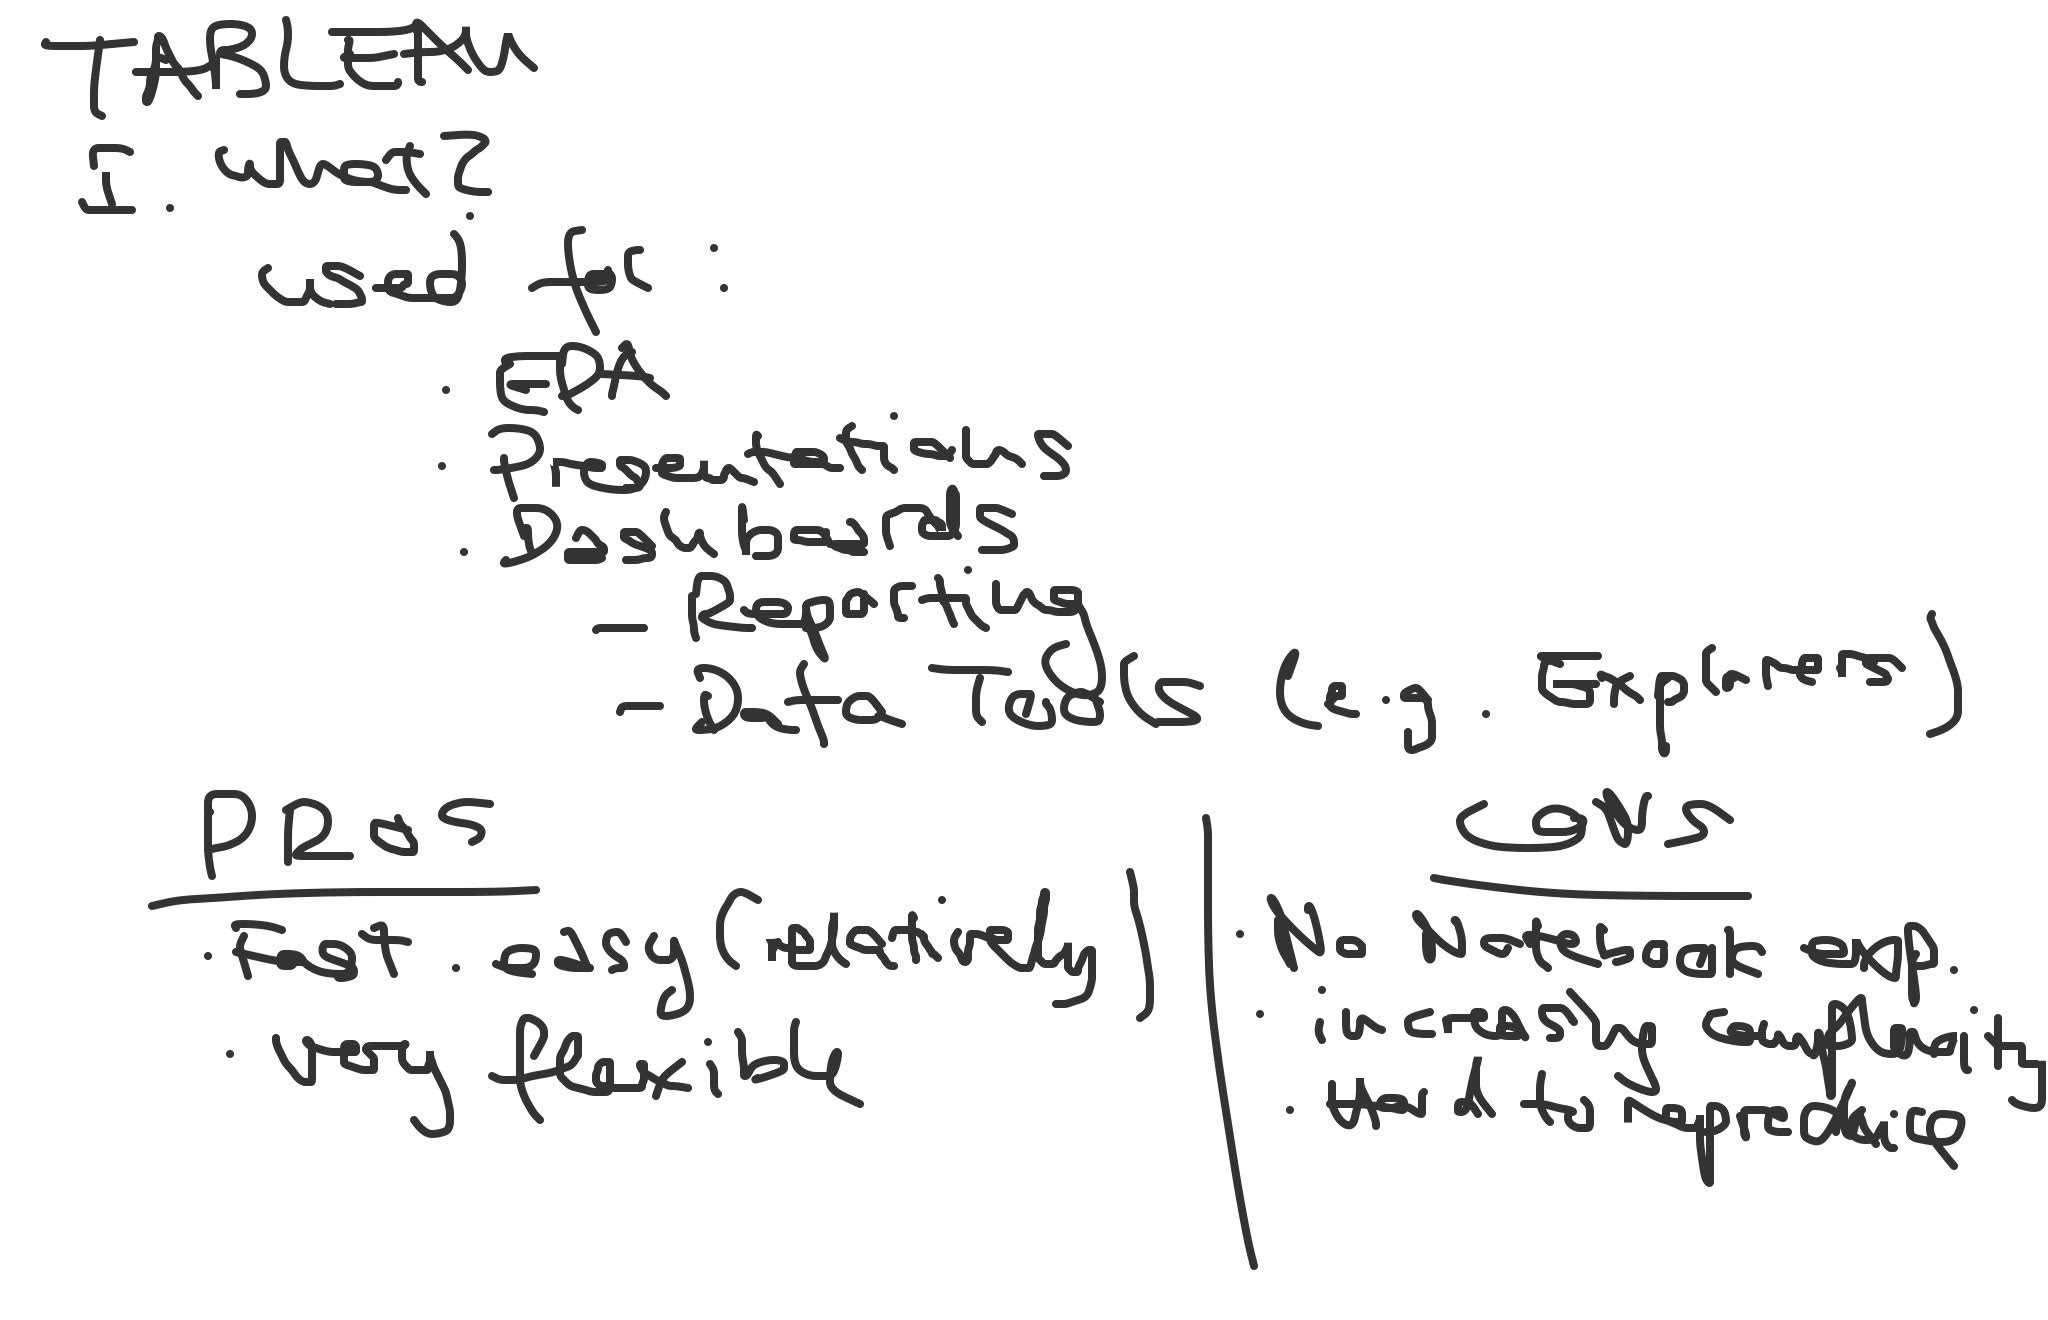 TABLEAU
I. what?
used for:
· EDA
· Presentations
· Dashboards
- Reporting
- Data Tools (e.g. Explorers)
PROS
· Fast · easy (relatively)
· very flexible
CONS
· No Notebook exp.
· increasing complexity
· Hard to reproduce